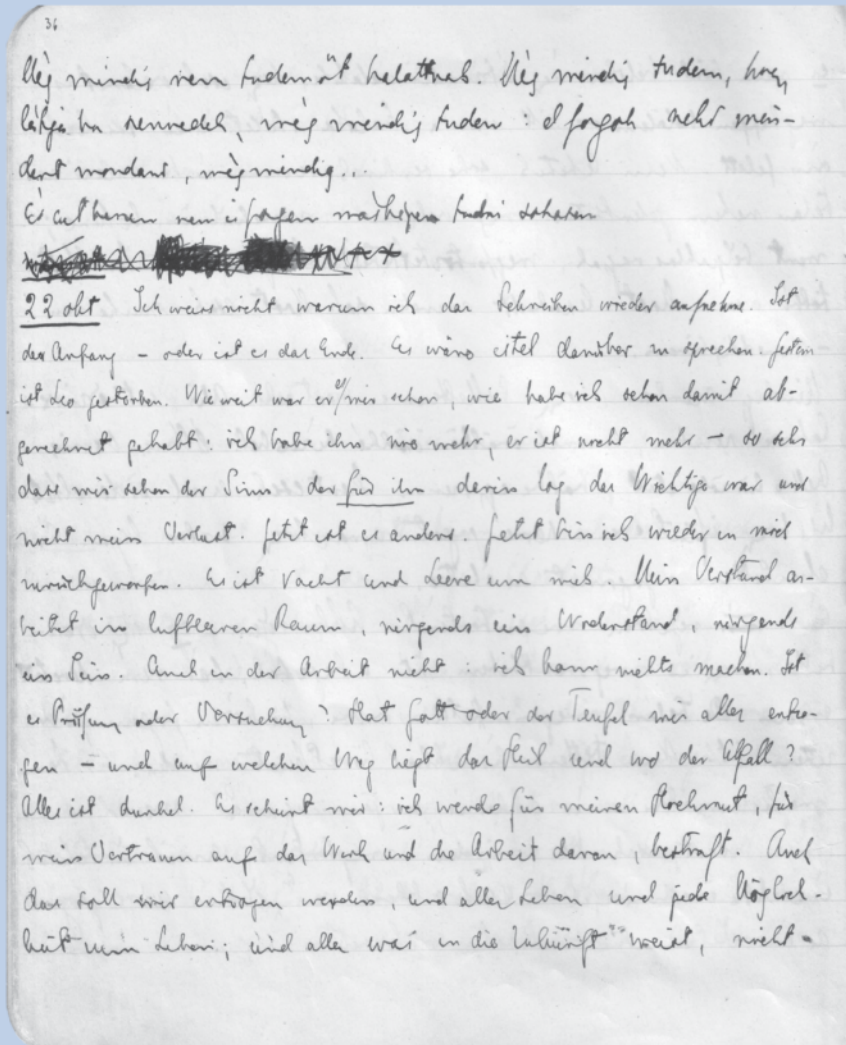 36
Még mindig nem tudom őt halottnak. Még mindig tudom, hogy
látja ha szenvedek, még mindig tudom: el fogok neki min-
dent mondani, még mindig...
És ezt hiszem nem is fogom másképen tudni sohasem
22 okt Ich weiss nicht warum ich das Schreiben wieder aufnehme. Ist
der Anfang – oder ist es das Ende. Es wäre eitel darüber zu sprechen. Gestern
ist Leo gestorben. Wie weit war er mir schon, wie habe ich schon damit ab-
gerechnet gehabt: ich habe ihn nie mehr, er ist nicht mehr – so sehr
dass mir schon der Sinn der für ihn darin lag das Wichtige war und
nicht mein Verlust. Jetzt ist es anders. Jetzt bin ich wieder in mich
zurückgeworfen. Es ist Nacht und Leere um mich. Mein Verstand ar-
beitet im luftleeren Raum, nirgends ein Widerstand, nirgends
ein Sein. Auch in der Arbeit nicht: ich kann nichts machen. Ist
es Prüfung oder Versuchung? Hat Gott oder der Teufel mir alles entzo-
gen – und auf welchen Weg liegt das Heil und wo der Abfall?
Alles ist dunkel. Es scheint mir: ich werde für meinen Hochmut, für
mein Vertrauen auf das Werk und die Arbeit daran, bestraft. Auch
das soll mir entzogen werden, und alles Leben und jede Möglich-
keit zum Leben; und alles was in die Zukunft weist, nicht-